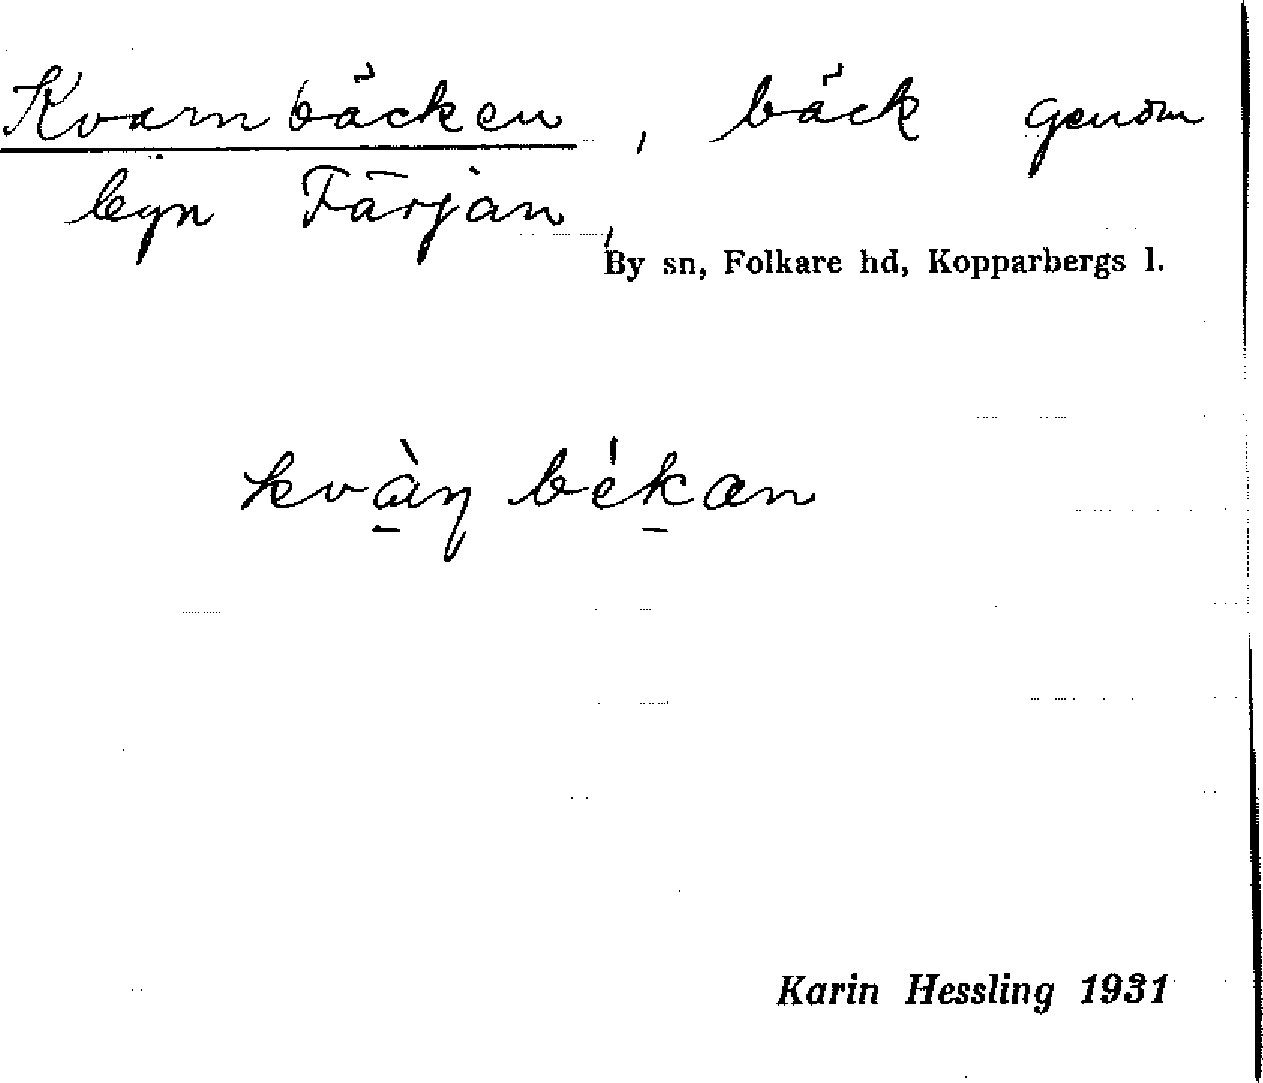 Kvarnbäcken, bäck genom
byn Färjan,
By sn, Folkare hd, Kopparbergs l.
kvàɳ békan
Karin Hessling 1931